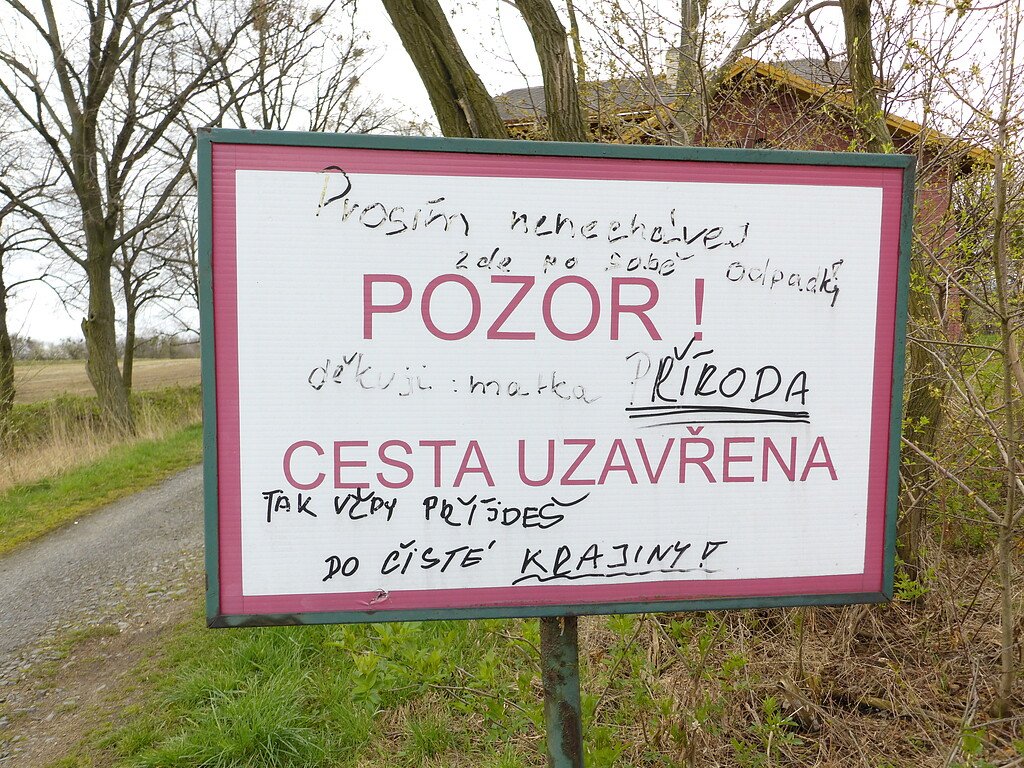 Prosím nenechávej
zde po sobě odpadky
POZOR !
děkuji : matka PŘÍRODA
CESTA UZAVŘENA
TAK VŽDY PŘÍJDEŠ
DO ČISTÉ KRAJINY !